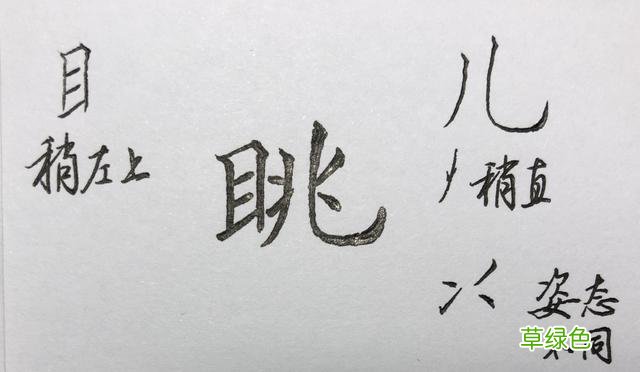 目
稍左上
眺
儿
丿稍直
姿态
同
草绿色